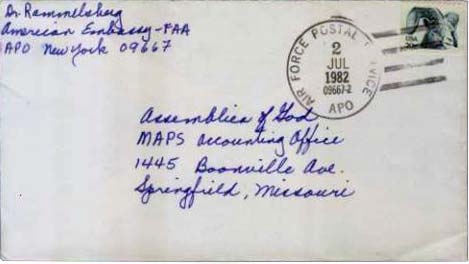 Dr Rammelsberg
American Embassy-FAA
APO New York 09667
AIR FORCE POSTAL SERVICE
2
JUL
1982
09667-2
APO
USA
Assemblies of God
MAPS Accounting Office
1445 Boonville Ave.
Springfield, Missouri